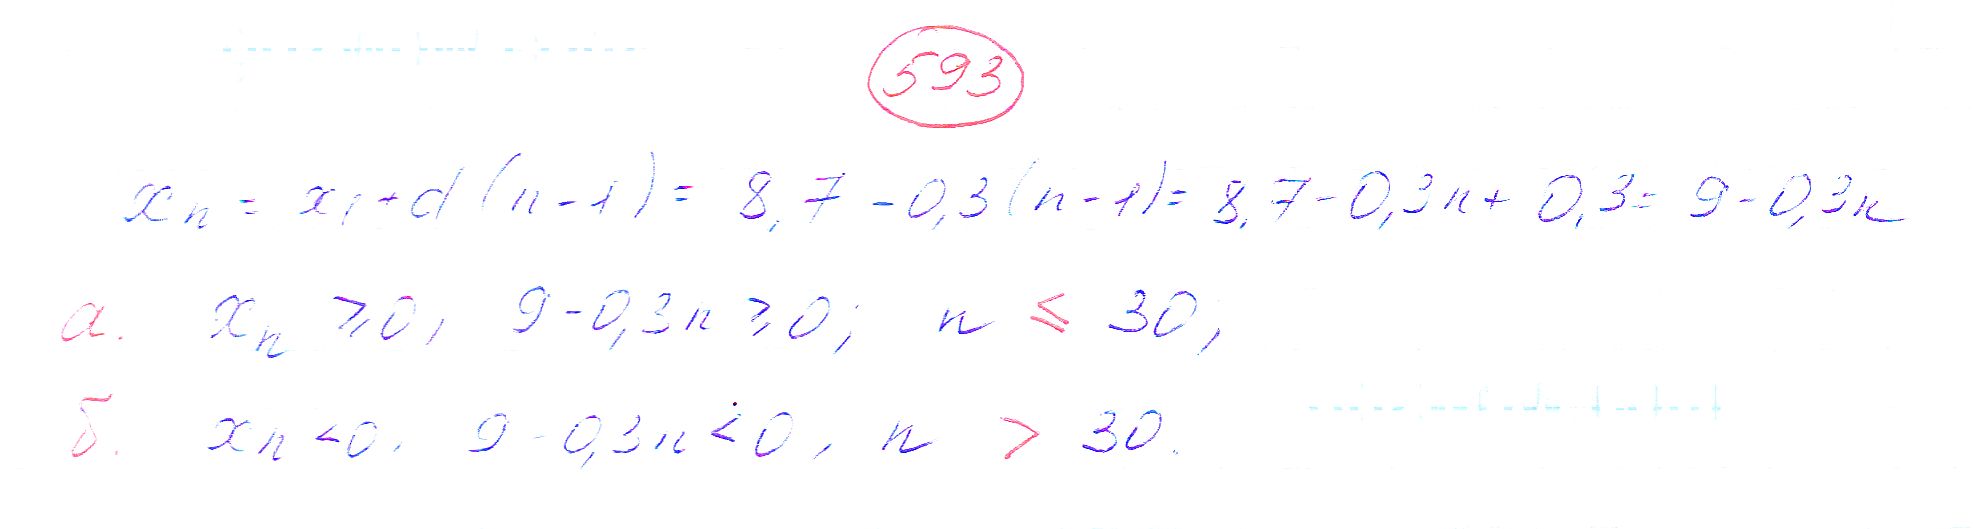 593
xₙ = x₁ + d (n - 1) = 8,7 - 0,3 (n - 1) = 8,7 - 0,3n + 0,3 = 9 - 0,3n
а. xₙ ⩾ 0, 9 - 0,3n ⩾ 0; n ⩽ 30,
б. xₙ < 0. 9 - 0,3n < 0, n > 30.